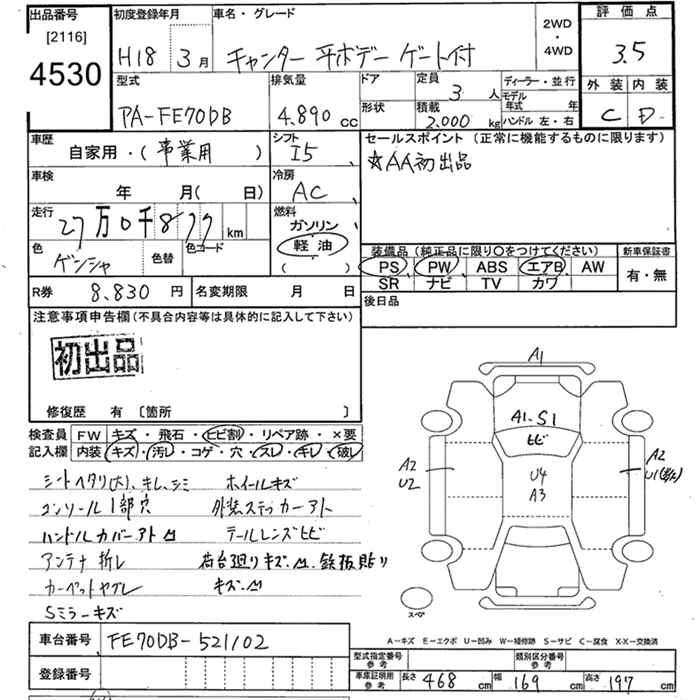 出品番号
[2116]
4530
初度登録年月
H18 3月
車名・グレード
キャンター 平ボデー ゲート付
2WD
・
4WD
評価点
3.5
外装 内装
C D
型式
PA-FE70DB
排気量
4.890 cc
ドア
形状
定員
3 人
積載
2.000 kg
ディーラー・並行
モデル
年式 年
ハンドル 左・右
車歴
自家用・(事業用 )
シフト
I5
セールスポイント (正常に機能するものに限ります)
☆AA初出品
車検
年 月( 日)
冷房
AC
走行
27万0千877 km
燃料
ガソリン
軽油
( )
色
ゲンシャ
色替
色コード
装備品 (純正品に限り○をつけてください)
PS PW ABS エアB AW
SR ナビ TV カワ
新車保証書
有・無
R券 8.830 円
名変期限 月 日
後日品
注意事項申告欄(不具合内容等は具体的に記入して下さい)
初出品
修復歴 有 [箇所 ]
検査員
記入欄
FW キズ・飛石・ヒビ割・リペア跡・×要
内装 キズ・汚レ・コゲ・穴・スレ・キレ・破レ
シートヘタリ(大)、キレ、シミ ホイールキズ
コンソール1部穴 外装ステッカーアト
ハンドルカバーアト凹 テールレンズヒビ
アンテナ折レ 荷台廻りキズ、凹、鉄板貼り
カーペットヤブレ キズ、凹
Sミラーキズ
A1
A1、S1
ヒビ
U4
A3
A2
U2
A2
スペア
A-キズ E-エクボ U-凹み W-補修跡 S-サビ C-腐食 X・X-交換済
車台番号 FE70DB-521102
登録番号
型式指定番号
参考
類別区分番号
参考
車庫証明用
参考
長さ 468 cm 幅 169 cm 高さ 197 cm